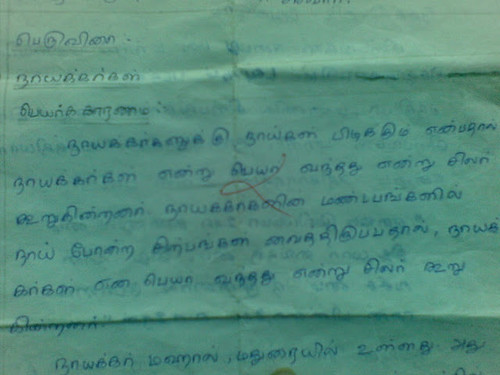 பெருவினா :
நாயக்கர்கள்
பெயர்க்காரணம் :
நாயக்கர்களுக்கு நாய்கள் பிடிக்கும் என்பதால்
நாயக்கர்கள் என்று பெயர் வந்தது என்று சிலர்
கூறுகின்றனர். நாயக்கர்களின் மண்டபங்களில்
நாய் போன்ற சிற்பங்கள் வைத்திருப்பதால், நாயக்
கர்கள் என பெயர் வந்தது என்று சிலர் கூறு
கின்றனர்.
நாயக்கர் மஹால், மதுரையில் உள்ளது. அது